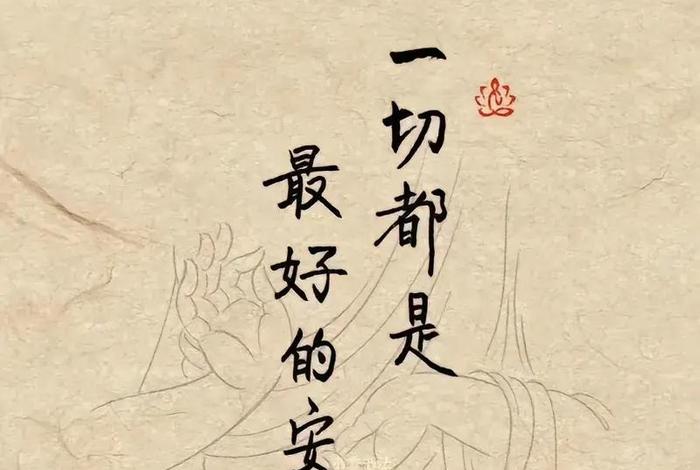 一切都是
最好的安